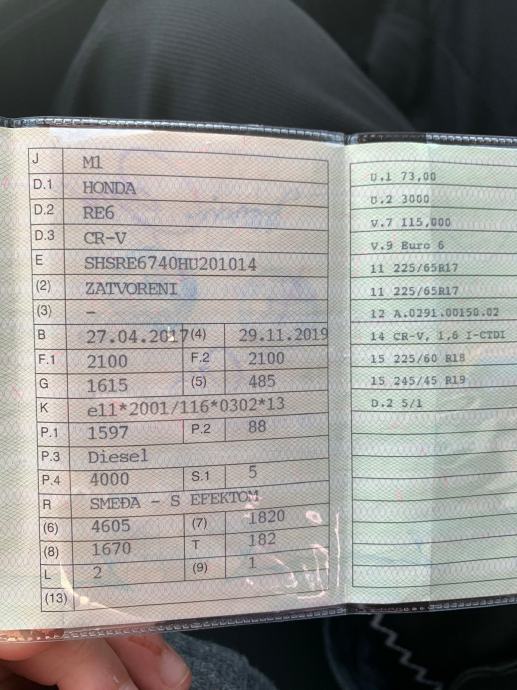 J M1
D.1 HONDA
D.2 RE6
D.3 CR-V
E SHSRE6740HU201014
(2) ZATVORENI
(3) –
B 27.04.2017 (4) 29.11.2019
F.1 2100 F.2 2100
G 1615 (5) 485
K e11*2001/116*0302*13
P.1 1597 P.2 88
P.3 Diesel
P.4 4000 S.1 5
R SMEĐA - S EFEKTOM
(6) 4605 (7) 1820
(8) 1670 T 182
L 2 (9) 1
(13)
U.1 73,00
U.2 3000
V.7 115,000
V.9 Euro 6
11 225/65R17
11 225/65R17
12 A.0291.00150.02
14 CR-V, 1,6 I-CTDI
15 225/60 R18
15 245/45 R19
D.2 5/1